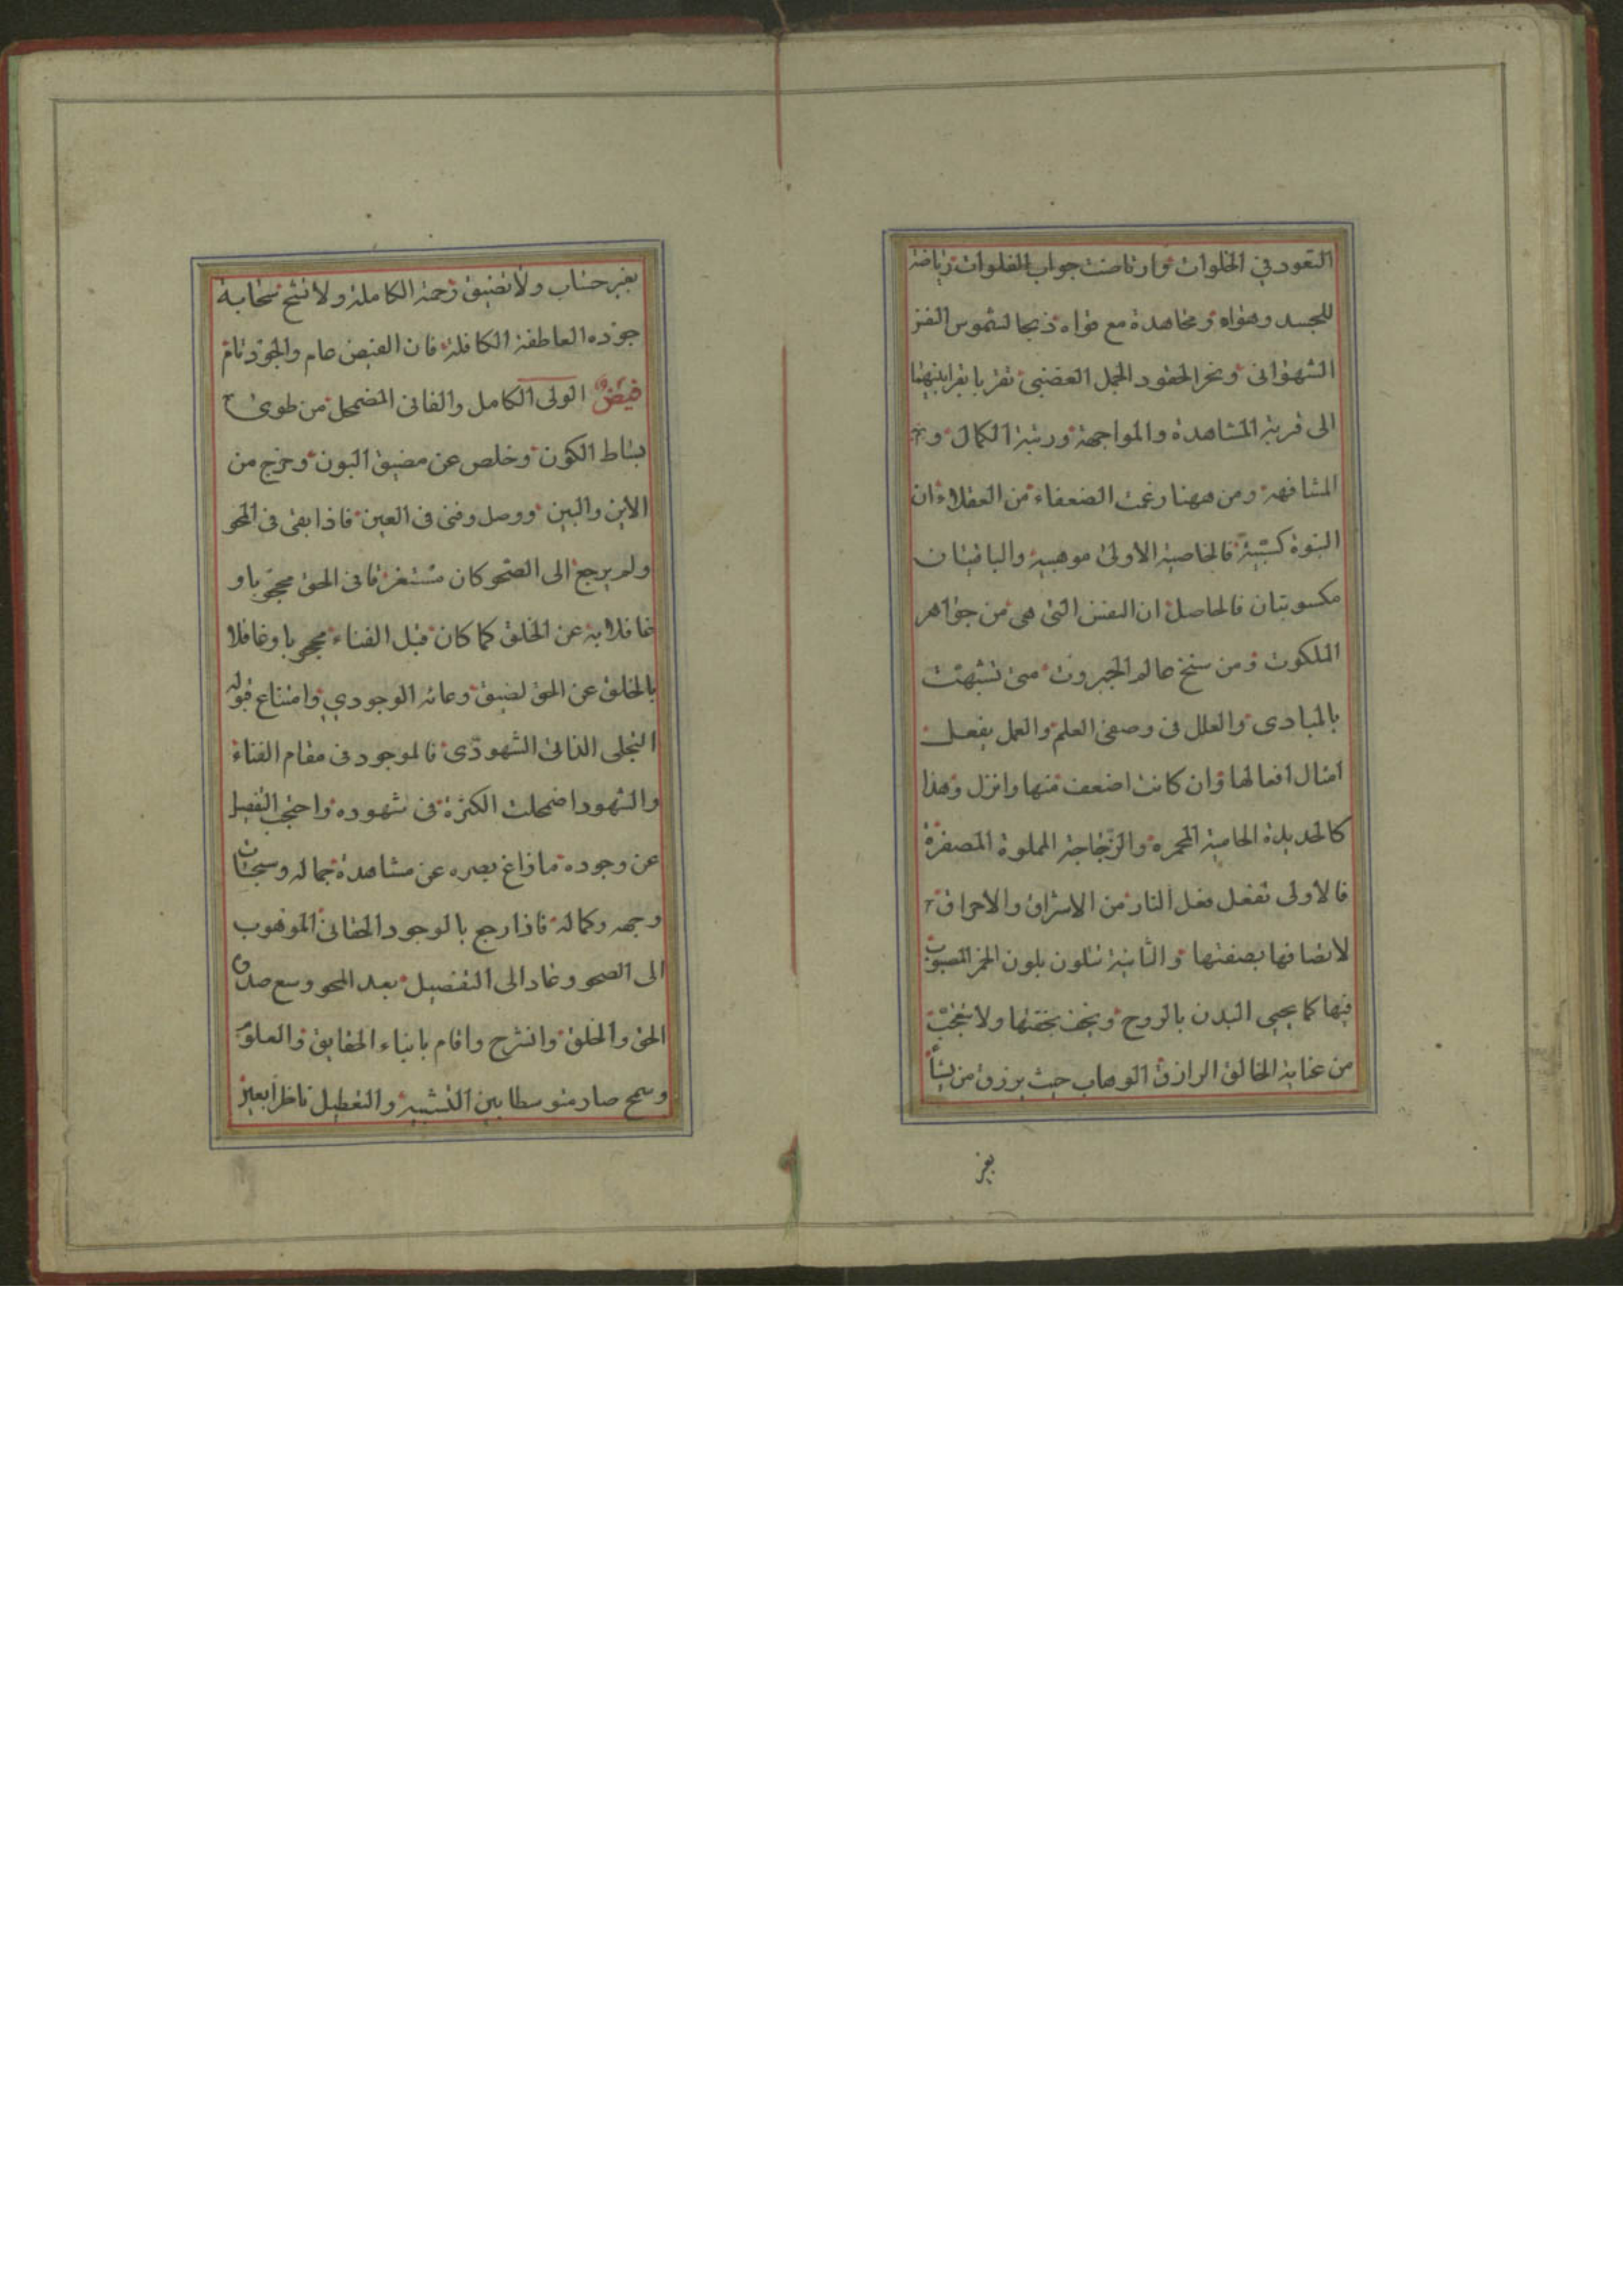 القعود في الخلوات وارتاضت جواب الفلوات رياضة
للجسد وهواه ومجاهدة مع قواه ذبحا لشموس النفر
الشهوانى ونحر الحقود الجمل الغضبى تقربا بقرابينهما
الى قربة المشاهدة والمواجهة ورتبة الكمال و
المشافهة ومن ههنا زعمت الضعفاء من العقلاء ان
النبوة كسبية فالخاصية الاولى موهبية والباقيتان
مكسوبتان فالحاصل ان النفس التى هى من جواهر
الملكوت ومن سنخ عالم الجبروت متى تشبهت
بالمبادى والعلل فى وصفى العلم والعمل يفعل
امثال افعالها وان كانت اضعف منها وانزل وهذا
كالحديدة الحامية المحمرة والزجاجة المملوة المصفرة
فالاولى تفعل فعل النار من الاشراق والاحراق
لاتصافها بصفتها والثانية تتلون بلون الخمر المصبوب
فيها كما يحيى البدن بالروح ويخف بخفتها ولا يتعجب
من عناية الخالق الرازق الوهاب حيث يرزق من يشاء
بغير
بغير حساب ولا تضيق رحمته الكاملة ولا تشح سحابة
جوده العاطفة الكافلة فان الفيض عام والجود تام
فيض الولى الكامل والفانى المضمحل من طوى
بساط الكون وخلص عن مضيق البون وخرج من
الاين والبين ووصل وفنى فى العين فاذا بقى فى المحو
ولم يرجع الى الصحو كان مستغرقا فى الحق محجوبا و
غافلا به عن الخلق كما كان قبل الفناء محجوبا وغافلا
بالخلق عن الحق لضيق وعائه الوجودي وامتناع قبوله
التجلى الذاتى الشهودى فالموجود فى مقام الفناء
والشهود اضمحلت الكثرة فى شهوده واحتجب التفصيل
عن وجوده ما زاغ بصره عن مشاهدة جماله وسبحات
وجهه وكماله فاذا رجع بالوجود الحقانى الموهوب
الى الصحو وعاد الى التفصيل بعد المحو وسع صدره
الحق والخلق وانشرح واقام بانباء الحقايق والعلوم
وسمح صار متوسطا بين التشبيه والتعطيل ناظرا بعين